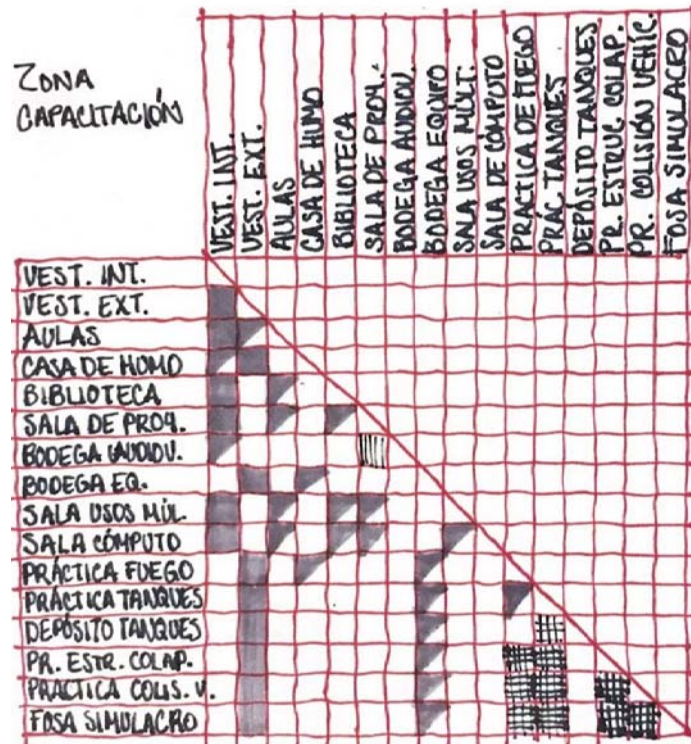 ZONA
CAPACITACIÓN
VEST. INT.
VEST. EXT.
AULAS
CASA DE HUMO
BIBLIOTECA
SALA DE PROY.
BODEGA AUDIOV.
BODEGA EQUIPO
SALA USOS MÚLT.
SALA DE CÓMPUTO
PRÁCTICA DE FUEGO
PRÁC TANQUES
DEPÓSITO TANQUES
PR. ESTRUC. COLAP.
PR. COLISIÓN VEHÍC.
FOSA SIMULACRO
VEST. INT.
VEST. EXT.
AULAS
CASA DE HUMO
BIBLIOTECA
SALA DE PROY.
BODEGA AUDIOV.
BODEGA EQ.
SALA USOS MÚL.
SALA CÓMPUTO
PRÁCTICA FUEGO
PRÁCTICA TANQUES
DEPÓSITO TANQUES
PR. ESTR. COLAP.
PRACTICA COLIS. V.
FOSA SIMULACRO